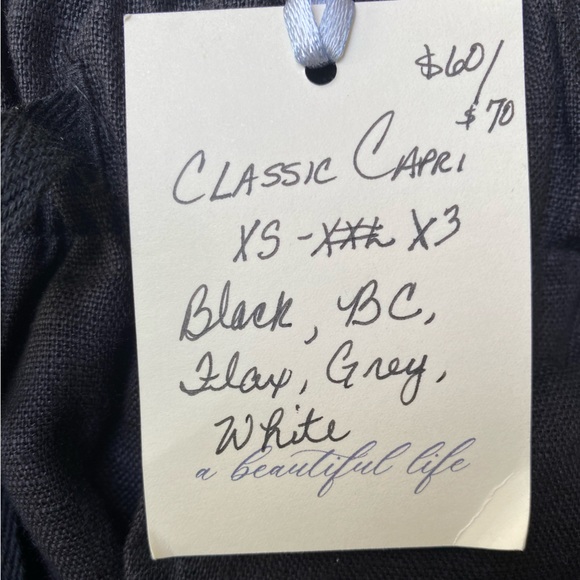 $60/
$70
CLASSIC CAPRI
XS - XXL X3
Black, BC,
Flax, Grey,
White
a beautiful life